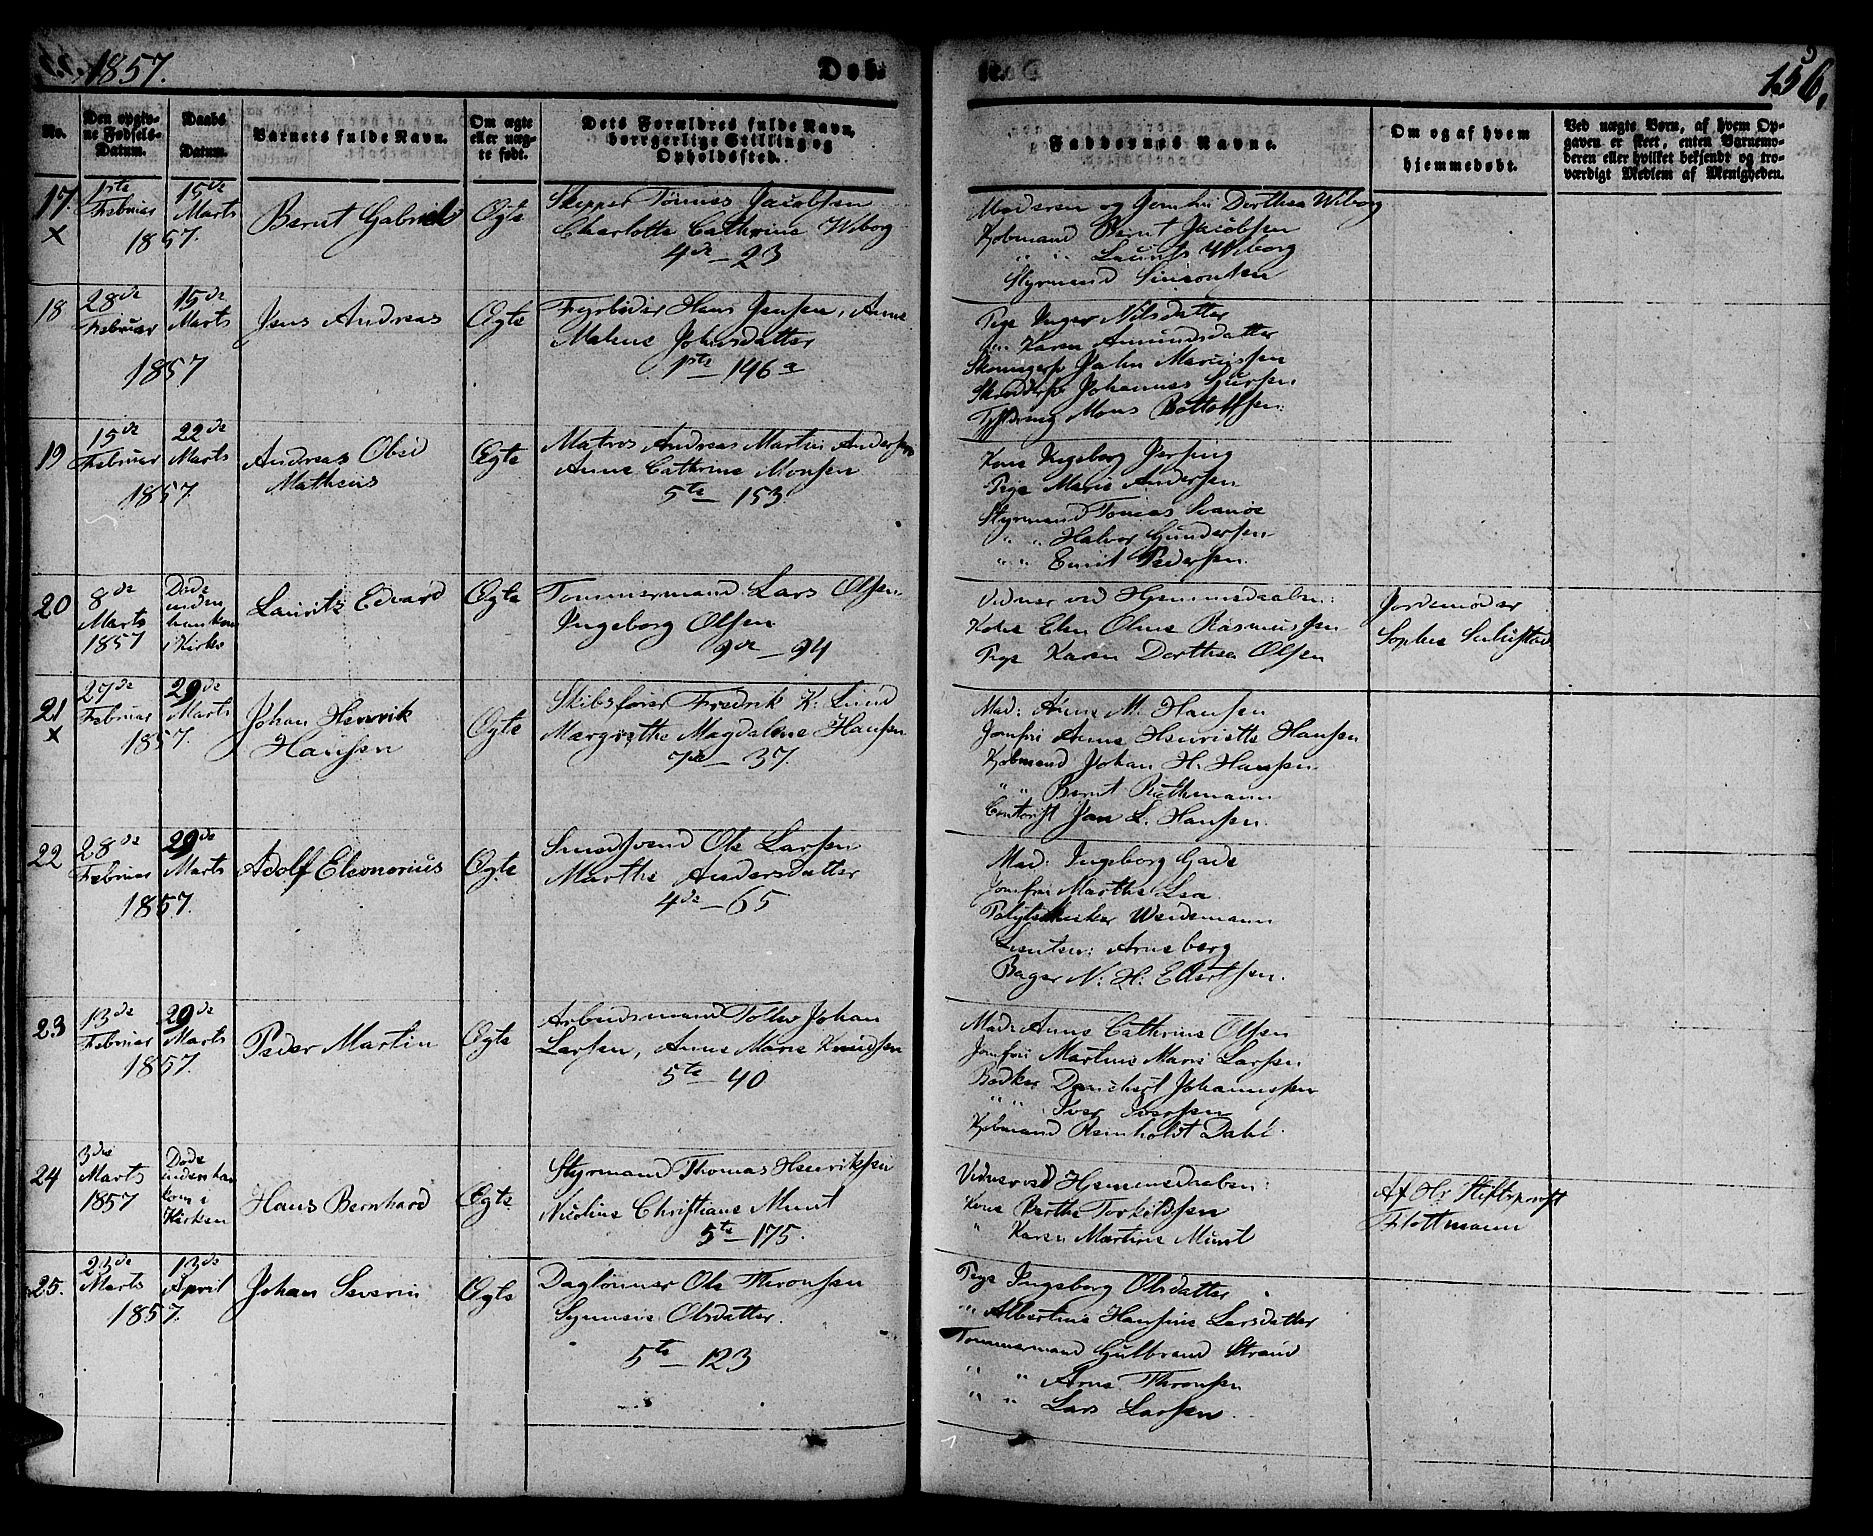 1857.
Døb-
156.
No.
Den opgiv-
ne Fødsels-
Datum.
Daabs
Datum.
Barnets fulde Navn.
Om ægte
eller uæg-
te født.
Dets Forældres fulde Navn,
borgerlige Stilling og
Opholdssted.
Faddernes Navne.
Om og af hvem
hjemmedøbt.
Ved uægte Børn, af hvem Op-
gaven er skeet, enten Barnemo-
deren eller hvilket bekjendt og tro-
værdigt Medlem af Menigheden.
17.
x
1ste
Februar
1857.
15de
Marts
Bernt Gabriel
Ægte
Skipper Tønnes Jacobsen
Charlotte Cathrine Wiborg
4de — 23
Moderen og Jomfru Dorthea Wiborg
Kjøbmand Bernt Jacobsen
" " Laurits Wiborg
Styrmand Simonsen
18
28de
Februar
1857
15de
Marts
Jens Andreas
Ægte
Fyrbøder Hans Jensen, Anne
Malene Johnsdatter
1ste — 146a
Pige Inger Nilsdatter
" Karen Amundsdatter
John
Johannes
Mons
19
15de
Februar
1857.
22de
Marts
Andreas Obed
Matheus
Ægte
Matros Andreas Martin Andersen
Anne Cathrine Monsen
5te — 153
Kone Ingeborg
Pige Marie Andersen
Styrmand Tomas Svanøe
" " Halvor Gundersen
" " Pedersen.
20
8de
Marts
1857
Døde
inden
han kom
i Kirke
Lauritz Edvard
Ægte
Tømmermand Lars Olsen
Ingeborg Olsen
9de — 94
Vidner ved Hjemmedaaben:
Kone Elen Oline Rasmussen
Pige Karen Dorthea Olsen
Jordemoder
Sophie
21
x
27de
Februar
1857.
29de
Marts
Johan Henrik
Hansen
Ægte
Skibsfører Fredrik K. Lund
Margrethe Magdalene Hansen
7de — 37.
Mad: Anne M. Hansen
Jomfru Anne Henriette Hansen
Kjøbmand Johan H. Hansen
" " Bernt
Contorist Jan L. Hansen.
22
28de
Februar
1857.
29de
Marts
Adolf Eleonorius
Ægte
Smedsvend Ole Larsen
Marthe Andersdatter
4de — 65
Mad: Ingeborg Gade
Jomfru Marthe Lea.
Polytekniker Weidemann
Lieuten: Arneberg
Bager N. H. Ellertsen.
23
13de
Februar
1857.
29de
Marts
Peder Martin
Ægte
Arbeidsmand Tollev Johan
Larsen, Anne Marie Knudsen
5te — 40
Mad: Anne Cathrine Olsen
Jomfru Martine Marie Larsen
Bødker Danchert Johannessen
" " Iver Iversen
Kjøbmand Reinholdt Dahl.
24
3die
Marts
1857
Døde
inden han
kom i
Kirken
Hans Bernhard
Ægte
Styrmand Thomas Henriksen
Nicoline Christiane Munt
5te — 175.
Vidner ved Hjemmedaaben:
Kone Berthe Torkildsen
" Karen Martine Munt
Af Hr. Stiftsprovst
Flottmann
25.
Marts
1857.
13de
April
Johan Severin
Ægte
Daglønner Ole Thronsen
Synneve Olsdatter.
5te — 123
Pige Ingeborg Olsdatter
" Albertine Hansine Larsdatter
Tømmermand Gulbrand Strand
" " Arne Thronsen
" " Lars Larsen.